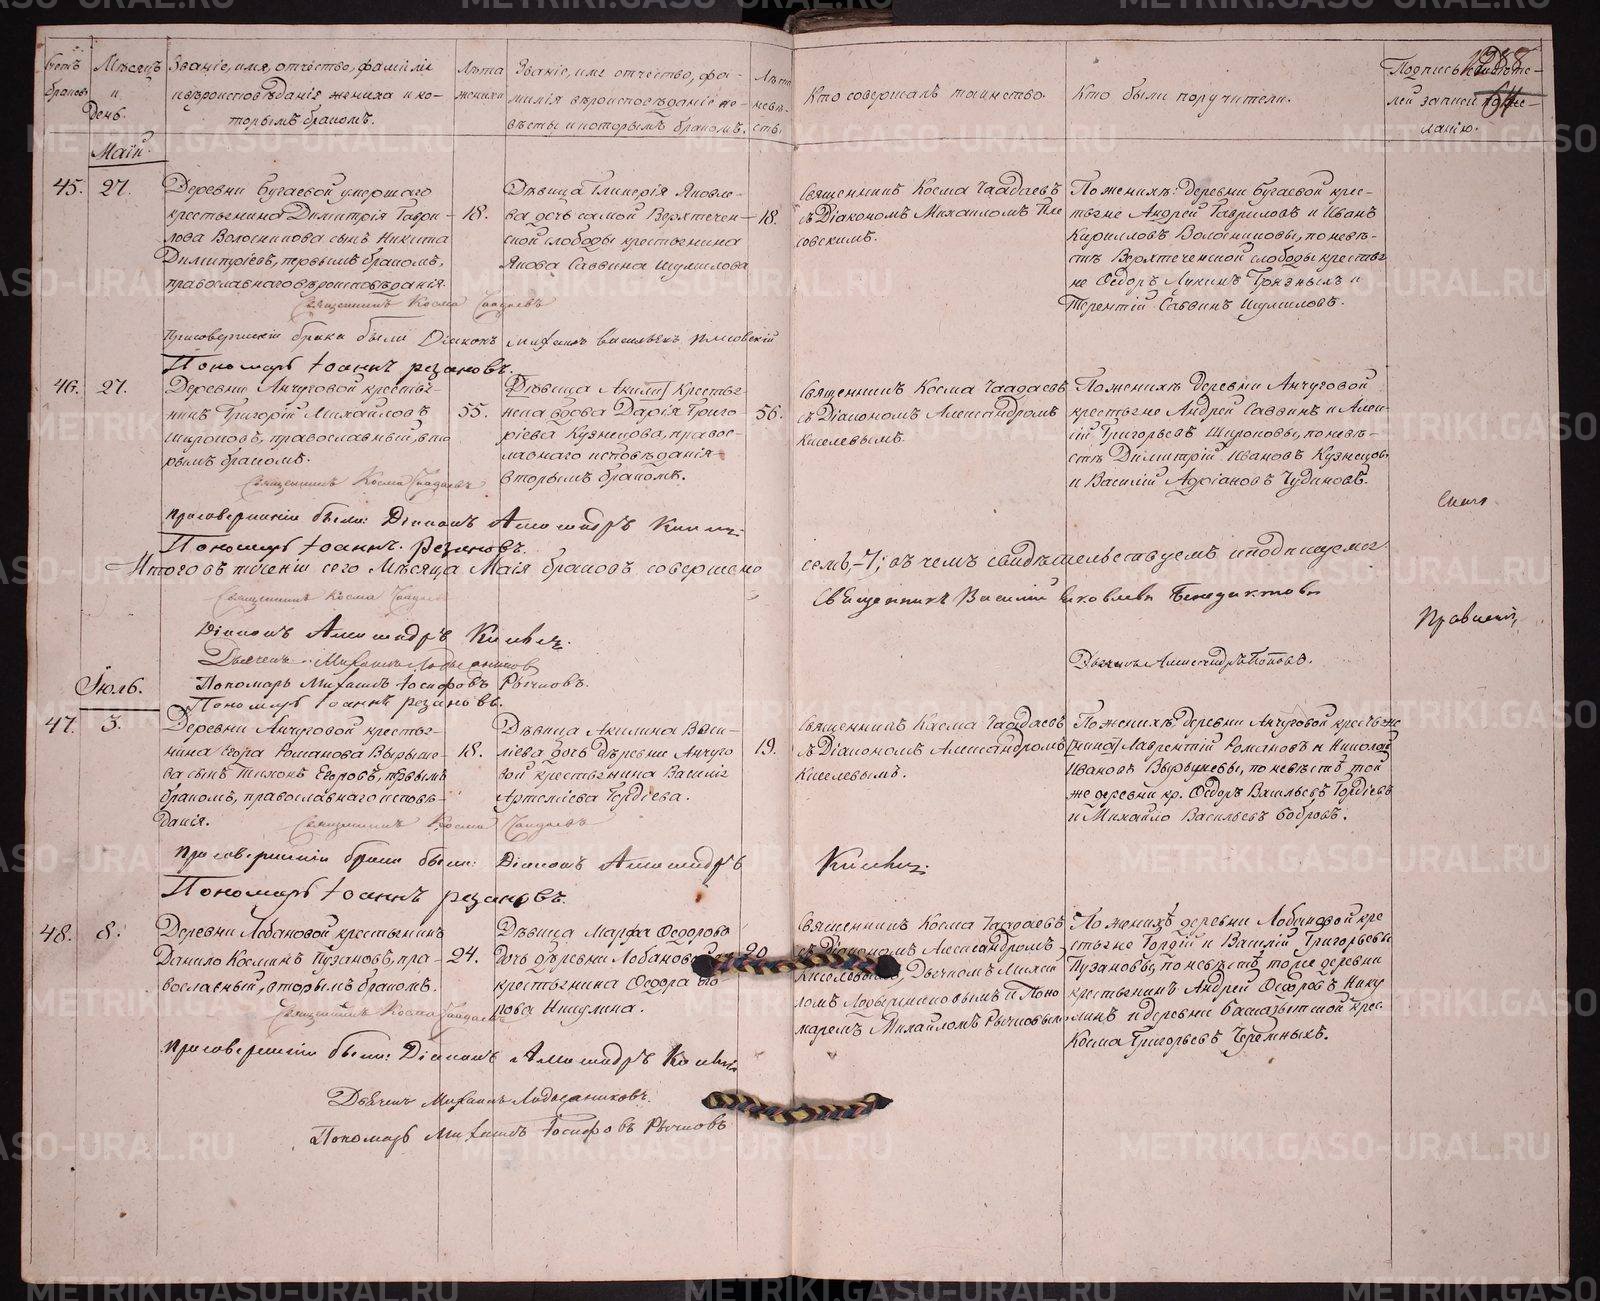 Мѣсяцъ
и
День.
Званіе, имя, отчество, фамилія
и вѣроисповѣданіе жениха и ко-
торымъ бракомъ.
Лѣта
жениха
Званіе, имя отчество, фа-
милія вѣроисповѣданіе не-
вѣсты и которымъ бракомъ.
Лѣта
невѣ-
сты.
Кто совершалъ таинство.
Кто были поручители.
Подпись
лей записи по же-
ланію.
Май.
45.
27.
Деревни Бугаевой умершаго
крестьянина Димитрія Гаври-
лова Волосникова сынъ Никита
Димитріевъ, первымъ бракомъ,
православнаго вѣроисповѣданія.
18.
Дѣвица Гликерія Яковле-
ва дочь самой Верхтечен-
ской слободы крестьянина
Якова Саввина Шумилова
18.
Священникъ Косма Чаадаевъ
съ Діакономъ Михаиломъ Пле
совскимъ.
По женихѣ: деревни Бугаевой крес-
тьяне Андрей Гавриловъ и Иванъ
Кирилловъ Волосниковы, по невѣ-
стѣ Верхтеченской слободы крестья
не Ѳедоръ и
Терентій Саввинъ Шумиловъ.
Священникъ Косма Чаадаевъ
При совершеніи брака были Діаконъ Михаилъ Васильевъ Плесовскій
Пономарь Іоаннъ Резановъ.
46.
27.
Деревни Анчуговой крестья-
нинъ Григорій Михайловъ
Широковъ, православный, вто
рымъ бракомъ.
55.
Дѣвица Крестья-
нска вдова Дарія Григо-
ріева Кузнецова, правос-
лавнаго исповѣданія
вторымъ бракомъ.
56.
Священникъ Косма Чаадаевъ
съ Діакономъ Александромъ
Киселевымъ.
По женихѣ деревни Анчуговой
крестьяне Андрей Саввинъ и Алек-
сій Григорьевъ Широковы, по невѣ-
стѣ Димитрій Ивановъ Кузнецовъ
и Василій Адріановъ Чудиновъ.
Священникъ Косма Чаадаевъ
При совершеніи были: Діаконъ Александръ
Пономарь Іоаннъ Резановъ.
Итого въ теченіи сего Мѣсяца Маія браковъ совершено
семь,-7; въ чемъ свидѣтельствуемъ и подписуемся
Священникъ Косма Чаадаевъ
Священникъ Василій Яковлевъ Бенедиктовъ
Діаконъ Александръ
Дьячекъ Михаилъ Ладыжниковъ
Дьячекъ Александръ Поповъ.
Пономарь Михаилъ Іосифовъ Рычковъ.
Пономарь Іоаннъ Резановъ.
Іюль.
47.
3.
Деревни Анчуговой крестья-
нина Егора Романова Вырыше-
ва сынъ Тихонъ Егоровъ, первымъ
бракомъ, православнаго исповѣ-
данія.
18.
Дѣвица Акилина Васи-
ліева дочь деревни Анчуго
вой крестьянина Василія
Артеміева Гордіева.
19.
Священникъ Косма Чаадаевъ
съ Діакономъ Александромъ
Киселевымъ.
По женихѣ деревни Анчуговой крестьяне
Лаврентій Романовъ и Николай
Ивановъ по невѣстѣ той
же деревни кр. Ѳедоръ Васильевъ Гордіевъ
и Михайло Васильевъ Бобровъ.
Священникъ Косма Чаадаевъ
При совершеніи брака были: Діаконъ Александръ
Пономарь Іоаннъ Резановъ.
48.
8.
Деревни Лобановой крестьянинъ
Данило Косминъ Пузановъ, пра-
вославный, вторымъ бракомъ.
24.
Дѣвица Марфа Ѳедорова
дочь деревни Лобановой
крестьянина Ѳедора
Никулина.
20
Священникъ Косма Чаадаевъ
съ Діакономъ Александромъ
Киселевымъ, Дьячкомъ Михаи
ломъ Ладыжниковымъ и Поно
маремъ Михаиломъ Рычковымъ
По женихѣ деревни Лобановой кре
стьяне Гордій и Василій Григорьевы
Пузановы, по невѣстѣ тоже деревни
крестьянинъ Андрей Ѳедоровъ Нику
линъ и деревни крес.
Косма Григорьевъ Черемныхъ.
Священникъ Косма Чаадаевъ
При совершеніи были: Діаконъ Александръ
Дьячекъ Михаилъ Ладыжниковъ.
Пономарь Михаилъ Іосифовъ Рычковъ
METRIKI.GASO-URAL.RU